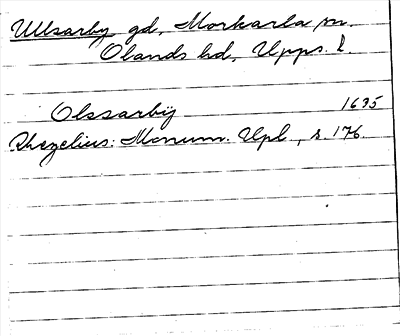 Ullsarby gd, Morkarla sn.
Olands hd, Upps. l.
Olssarbÿ 1635
Rhezelius: Monum. Upl., s. 176.